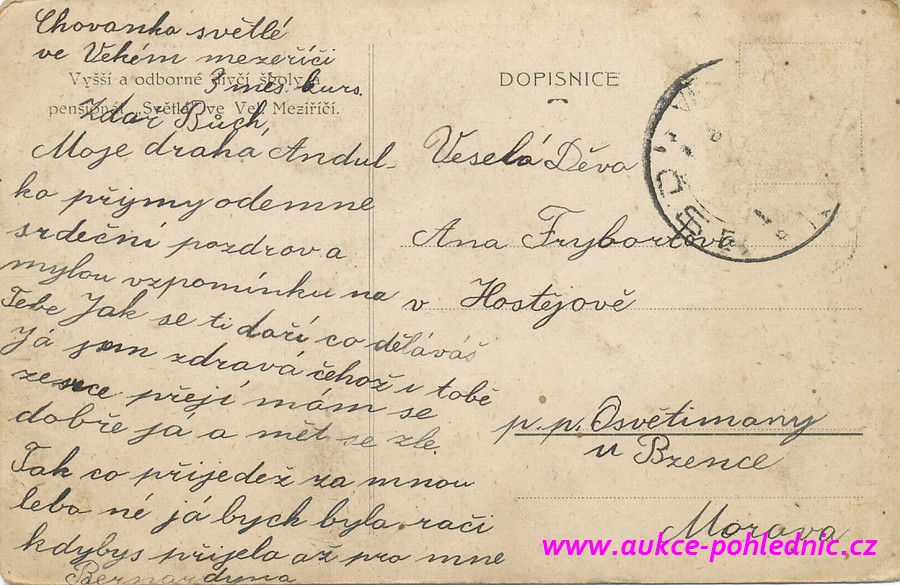 Chovanka světlé
ve Velkém mezeříčí
Vyšší a odborné dívčí školy a
3 měs. kurs.
pensionát „Světlá" ve Vel. Meziříčí.
Zdař Bůch,
Moje draha Andul-
ko přijmy odemne
srdeční pozdrov a
mylou vzpomínku na
Tebe Jak se ti daří co děláváš
Já jsem zdravá čehož i tobě
ze srce přejí mám se
dobře já a mět se zle.
Tak co přijedež za mnou
lebo né já bych byla rači
kdybys přijela až pro mne
Bernardyna
DOPISNICE
Veselá Děva
Ana Frybortová
v Hostějově
p. p. Osvětimany
u Bzence
Morava
www.aukce-pohlednic.cz